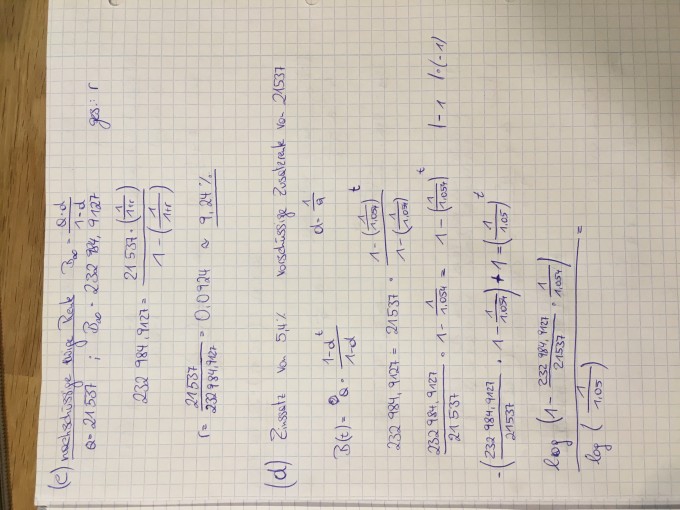 (c) nachschüssige ewige Rente B∞ = Q·d / 1-d
Q = 21537 ; B∞ = 232 984,9127 ges.: r
232 984,9127 = 21537 · (1/1+r) / 1 - (1/1+r)
r = 21537 / 232984,9127 = 0,0924 ≈ 9,24 %
(d) Zinssatz von 5,4% vorschüssige Zusatzrente von 21537
B(t) = Q · 1-d^t / 1-d d = 1/q
232 984,9127 = 21537 · 1 - (1/1,054)^t / 1 - (1/1,054)
232 984,9127 / 21 537 · 1 - 1/1,054 = 1 - (1/1,054)^t |-1 |·(-1)
-(232 984,9127 / 21537 · 1 - 1/1,054) + 1 = (1/1,05)^t
log (1 - 232 984,9127 / 21537 · 1/1,054) / log (1/1,05) =